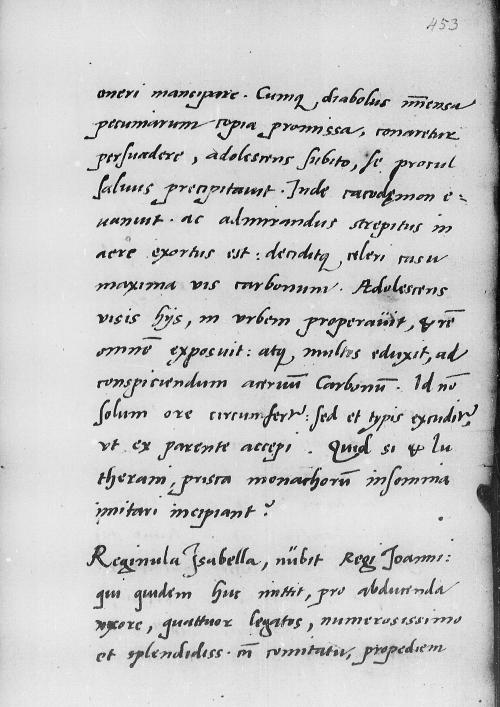 453
oneri mansipare. Cumq, diabolus im̄ensa
pecuniarum copia promissa, conaretur
persuadere, adolescens subito, se procul
saluus precipitauit. Inde cacodęmon e-
uanuit. ac admirandus strepitus in
aere exortus est: deciditq, celeri casu
maxima vis carbonum. Adolescens
visis hijs, in vrbem properauit, & rē
omnē exposuit: atq, multos eduxit, ad
conspiciendum aceruū Carbonū. Id nō
solum ore circumfertr: sed et typis excuditr,
vt ex parente accepi. Quid si & lu
therani, prisca monachorū insomnia
imitari incipiant?
Reginula Isabella, nubit Regi Joanni:
qui quidem huc mittit, pro abducenda
uxore, quattuor legatos, numerosissimo
et splendidiss. cū comitatu, propediem